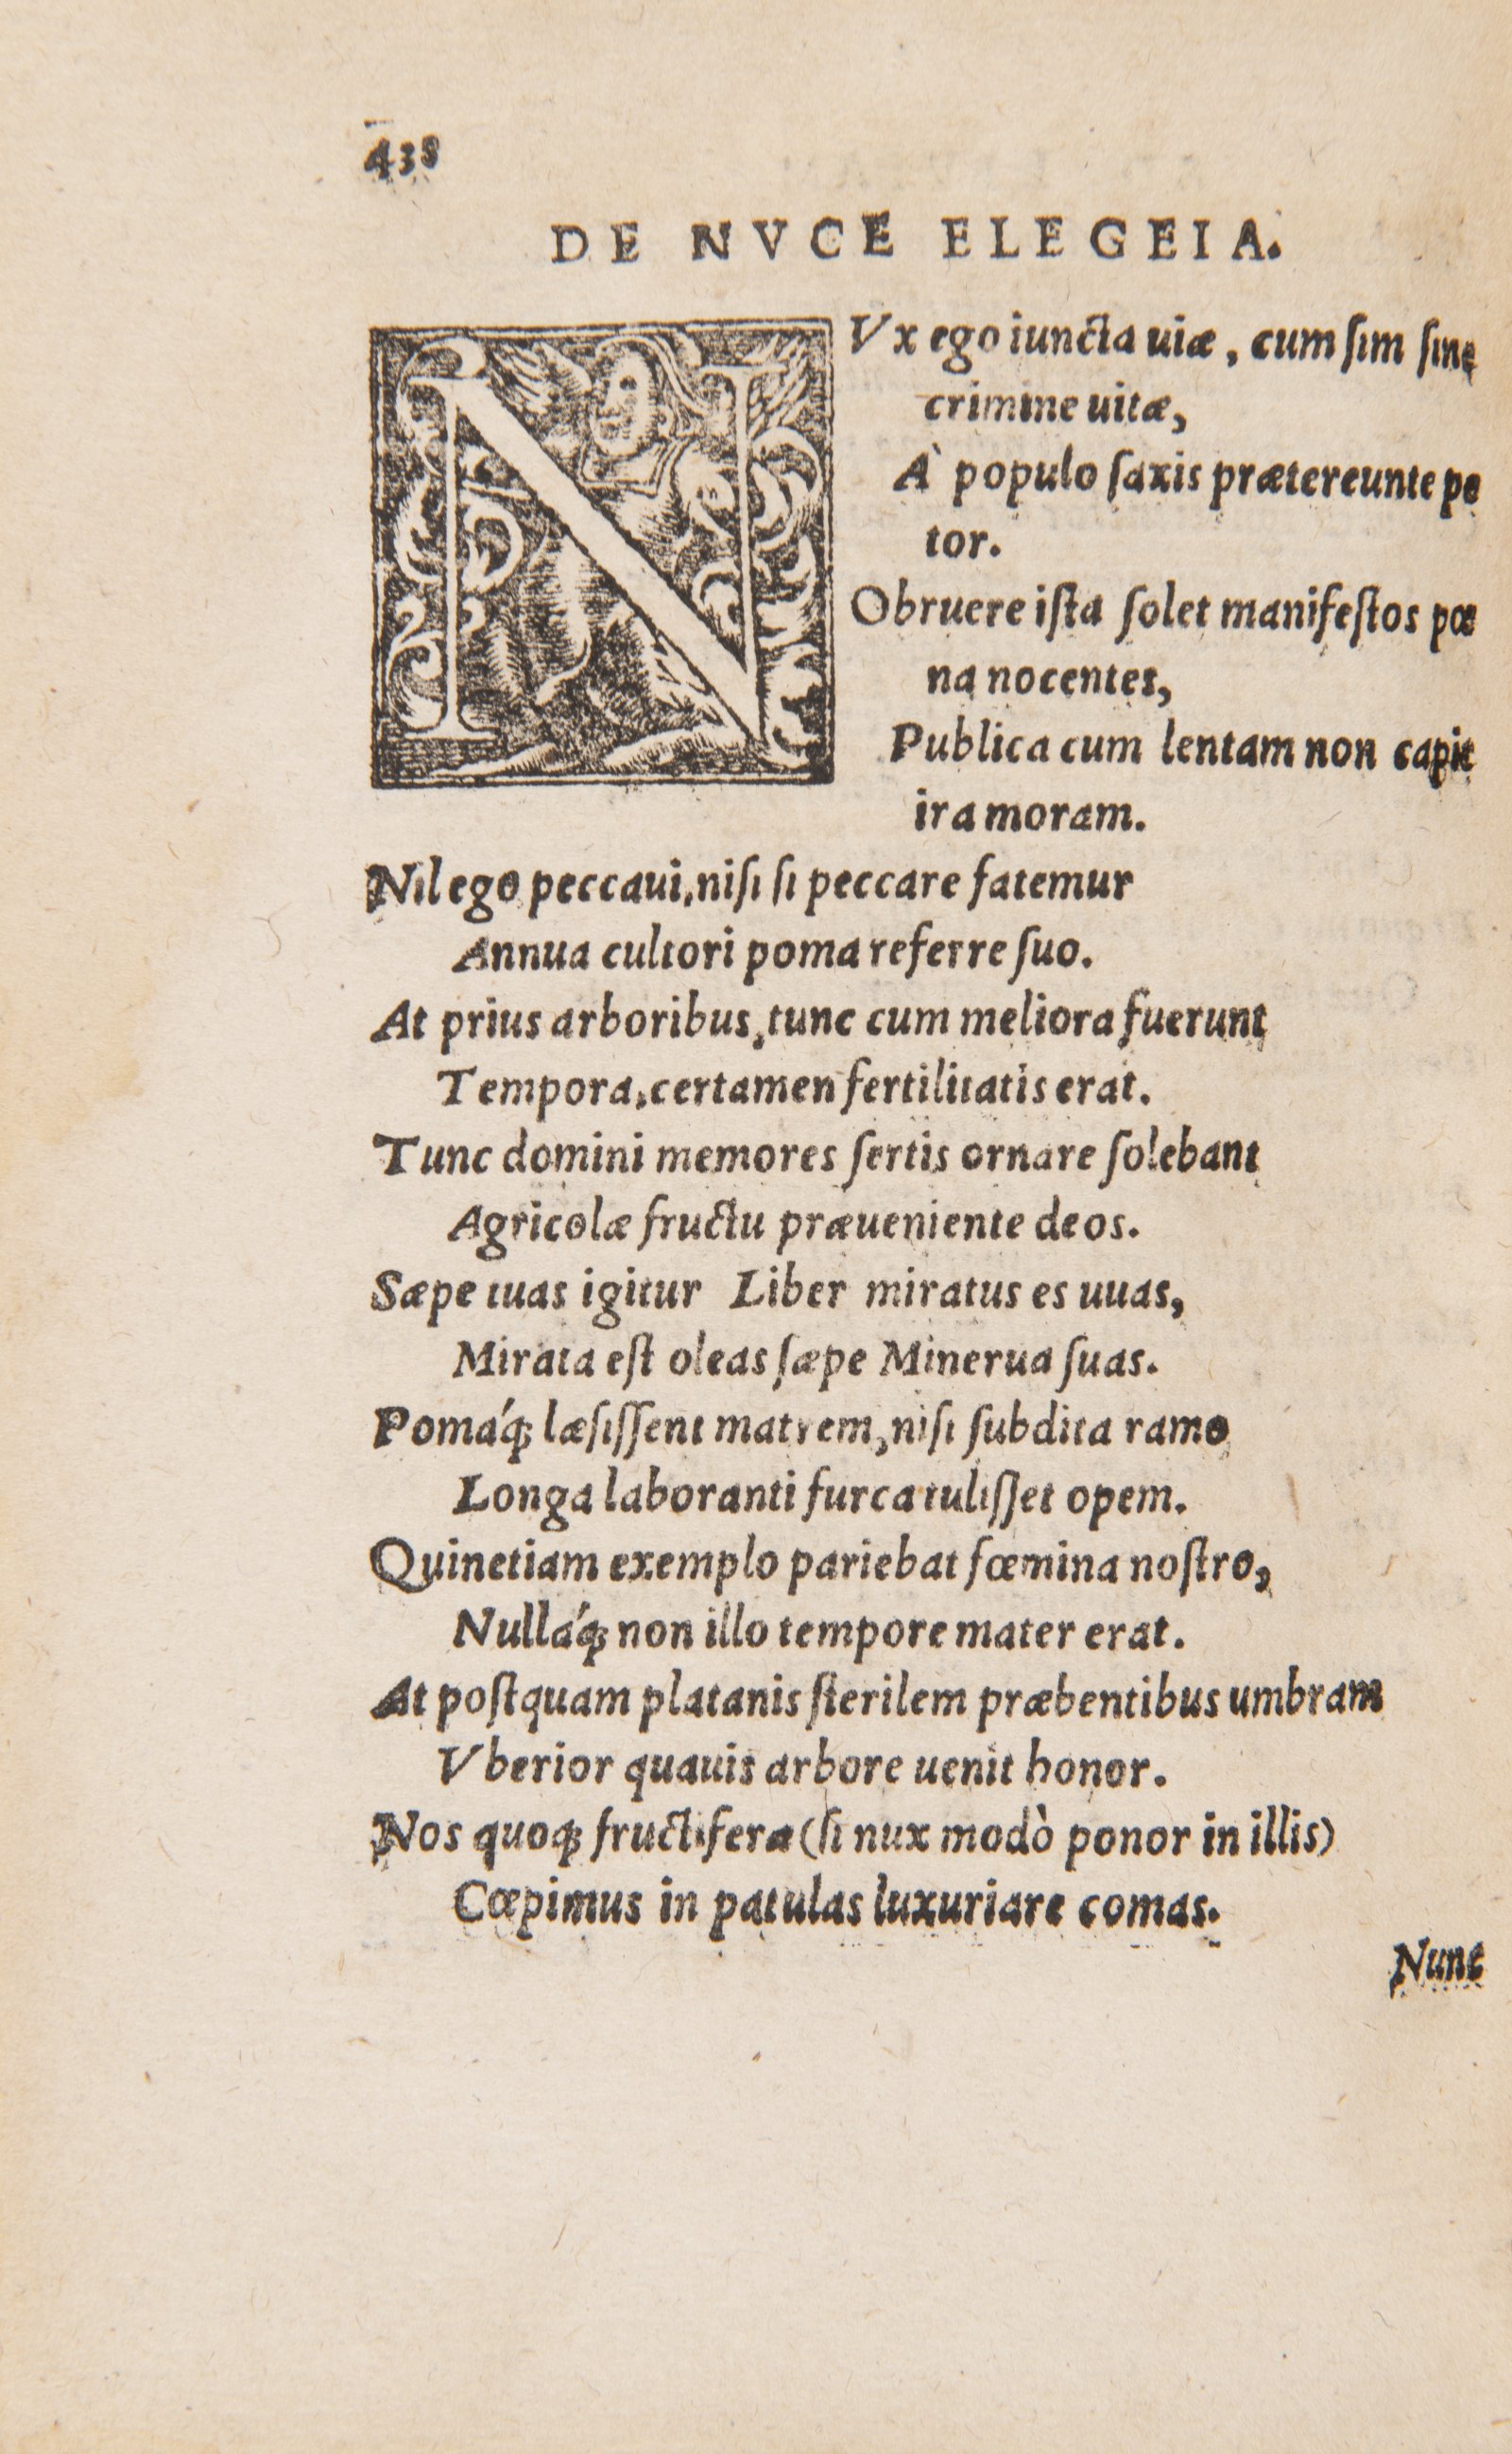 438
DE NVCE ELEGEIA.
NVx ego iuncta uiæ, cum ſim ſine
crimine uitæ,
À populo ſaxis prætereunte pe
tor.
Obruere iſta ſolet manifeſtos pœ
na nocentes,
Publica cum lentam non capit
ira moram.
Nil ego peccaui, niſi ſi peccare fatemur
Annua cultori poma referre ſuo.
At prius arboribus, tunc cum meliora fuerunt
Tempora, certamen fertilitatis erat.
Tunc domini memores ſertis ornare ſolebant
Agricolæ fructu præueniente deos.
Sæpe tuas igitur Liber miratus es uuas,
Mirata eſt oleas ſæpe Minerua ſuas.
Pomáq; læſiſſent matrem, niſi ſubdita ramo
Longa laboranti furca tuliſſet opem.
Quinetiam exemplo pariebat fœmina noſtro,
Nulláq; non illo tempore mater erat.
At poſtquam platanis ſterilem præbentibus umbram
Vberior quauis arbore uenit honor.
Nos quoq; fructifera (ſi nux modò ponor in illis)
Cœpimus in patulas luxuriare comas.
Nunc